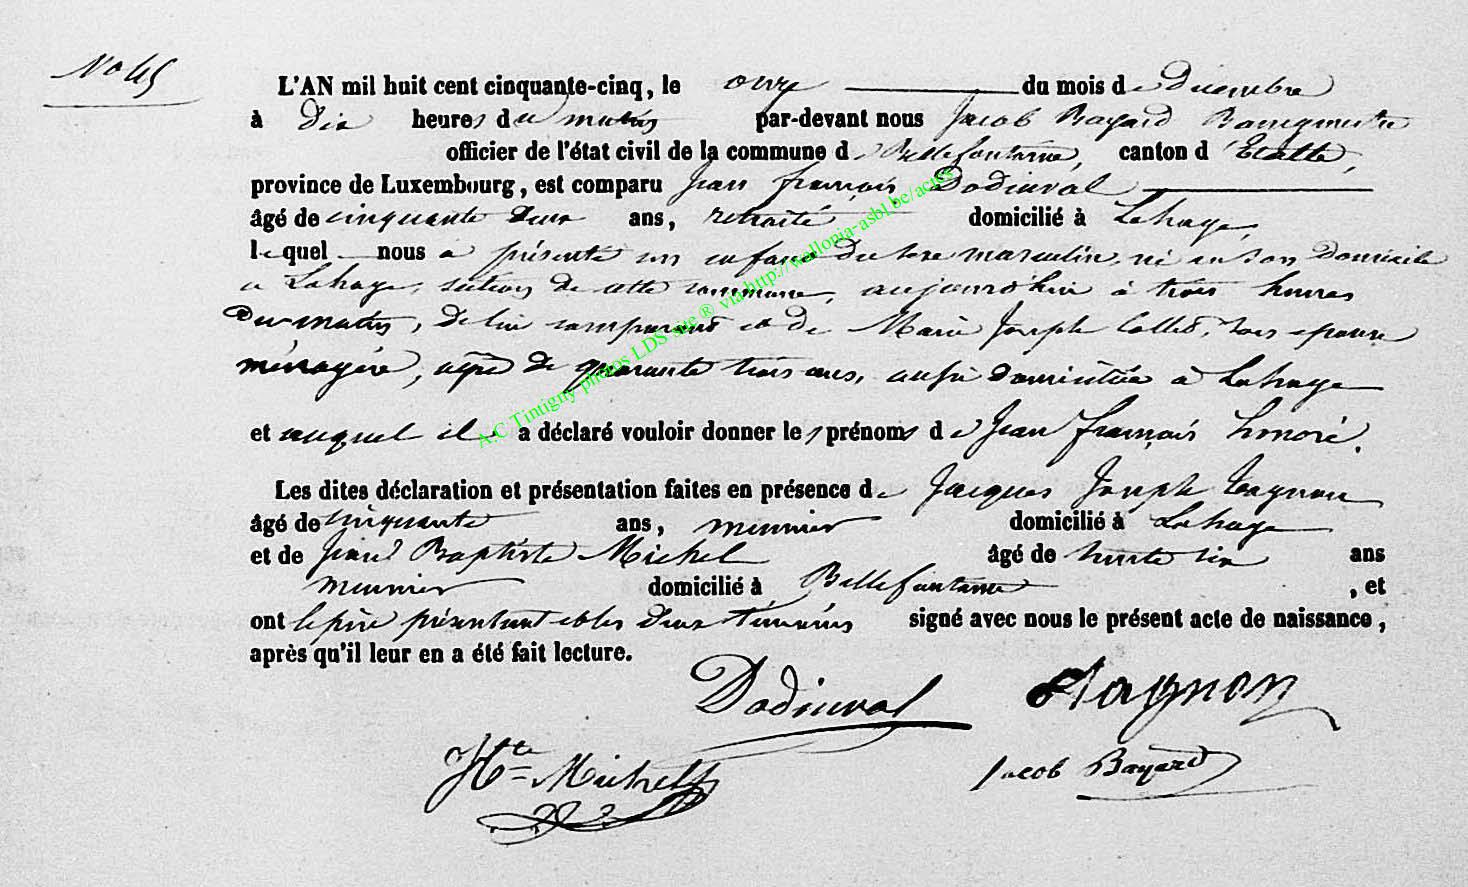 No 45
L'AN mil huit cent cinquante-cinq, le onze du mois de Décembre
à dix heures du matin par-devant nous Jacob Bayard Bourgmestre
officier de l'état civil de la commune de Bellefontaine, canton d'Etalle,
province de Luxembourg, est comparu Jean françois Dodinval
âgé de cinquante deux ans, retraité domicilié à Lahage,
lequel nous a présenté un enfant du sexe masculin, né en son domicile
à Lahage, section de cette commune, aujourd'hui à trois heures
du matin, de lui comparant et de Marie Joseph Collet, son epouse
ménagère, agée de quarante trois ans, aussi domiciliée à Lahage
et auquel il a déclaré vouloir donner les prénoms de Jean françois honoré.
Les dites déclaration et présentation faites en présence de Jacques Joseph Tagnon
âgé de cinquante ans, meunier domicilié à Lahage
et de Jean Baptiste Michel âgé de trente six ans
meunier domicilié à Bellefontaine, et
ont le père présentant et les deux témoins signé avec nous le présent acte de naissance,
après qu'il leur en a été fait lecture.
Dodinval Tagnon
Hte Michel Jacob Bayard
A.C Tintigny photos LDS site ® via http://wallonia-asbl.be/actes